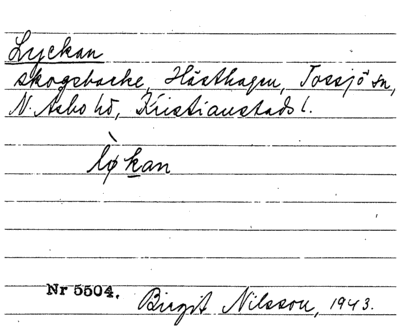 Lyckan
skogsbacke, Hästhagen, Tossjö sn,
N. Asbo hd, Kristianstads l.
lø̀kan
Nr 5504.
Birgit Nilsson, 1943.